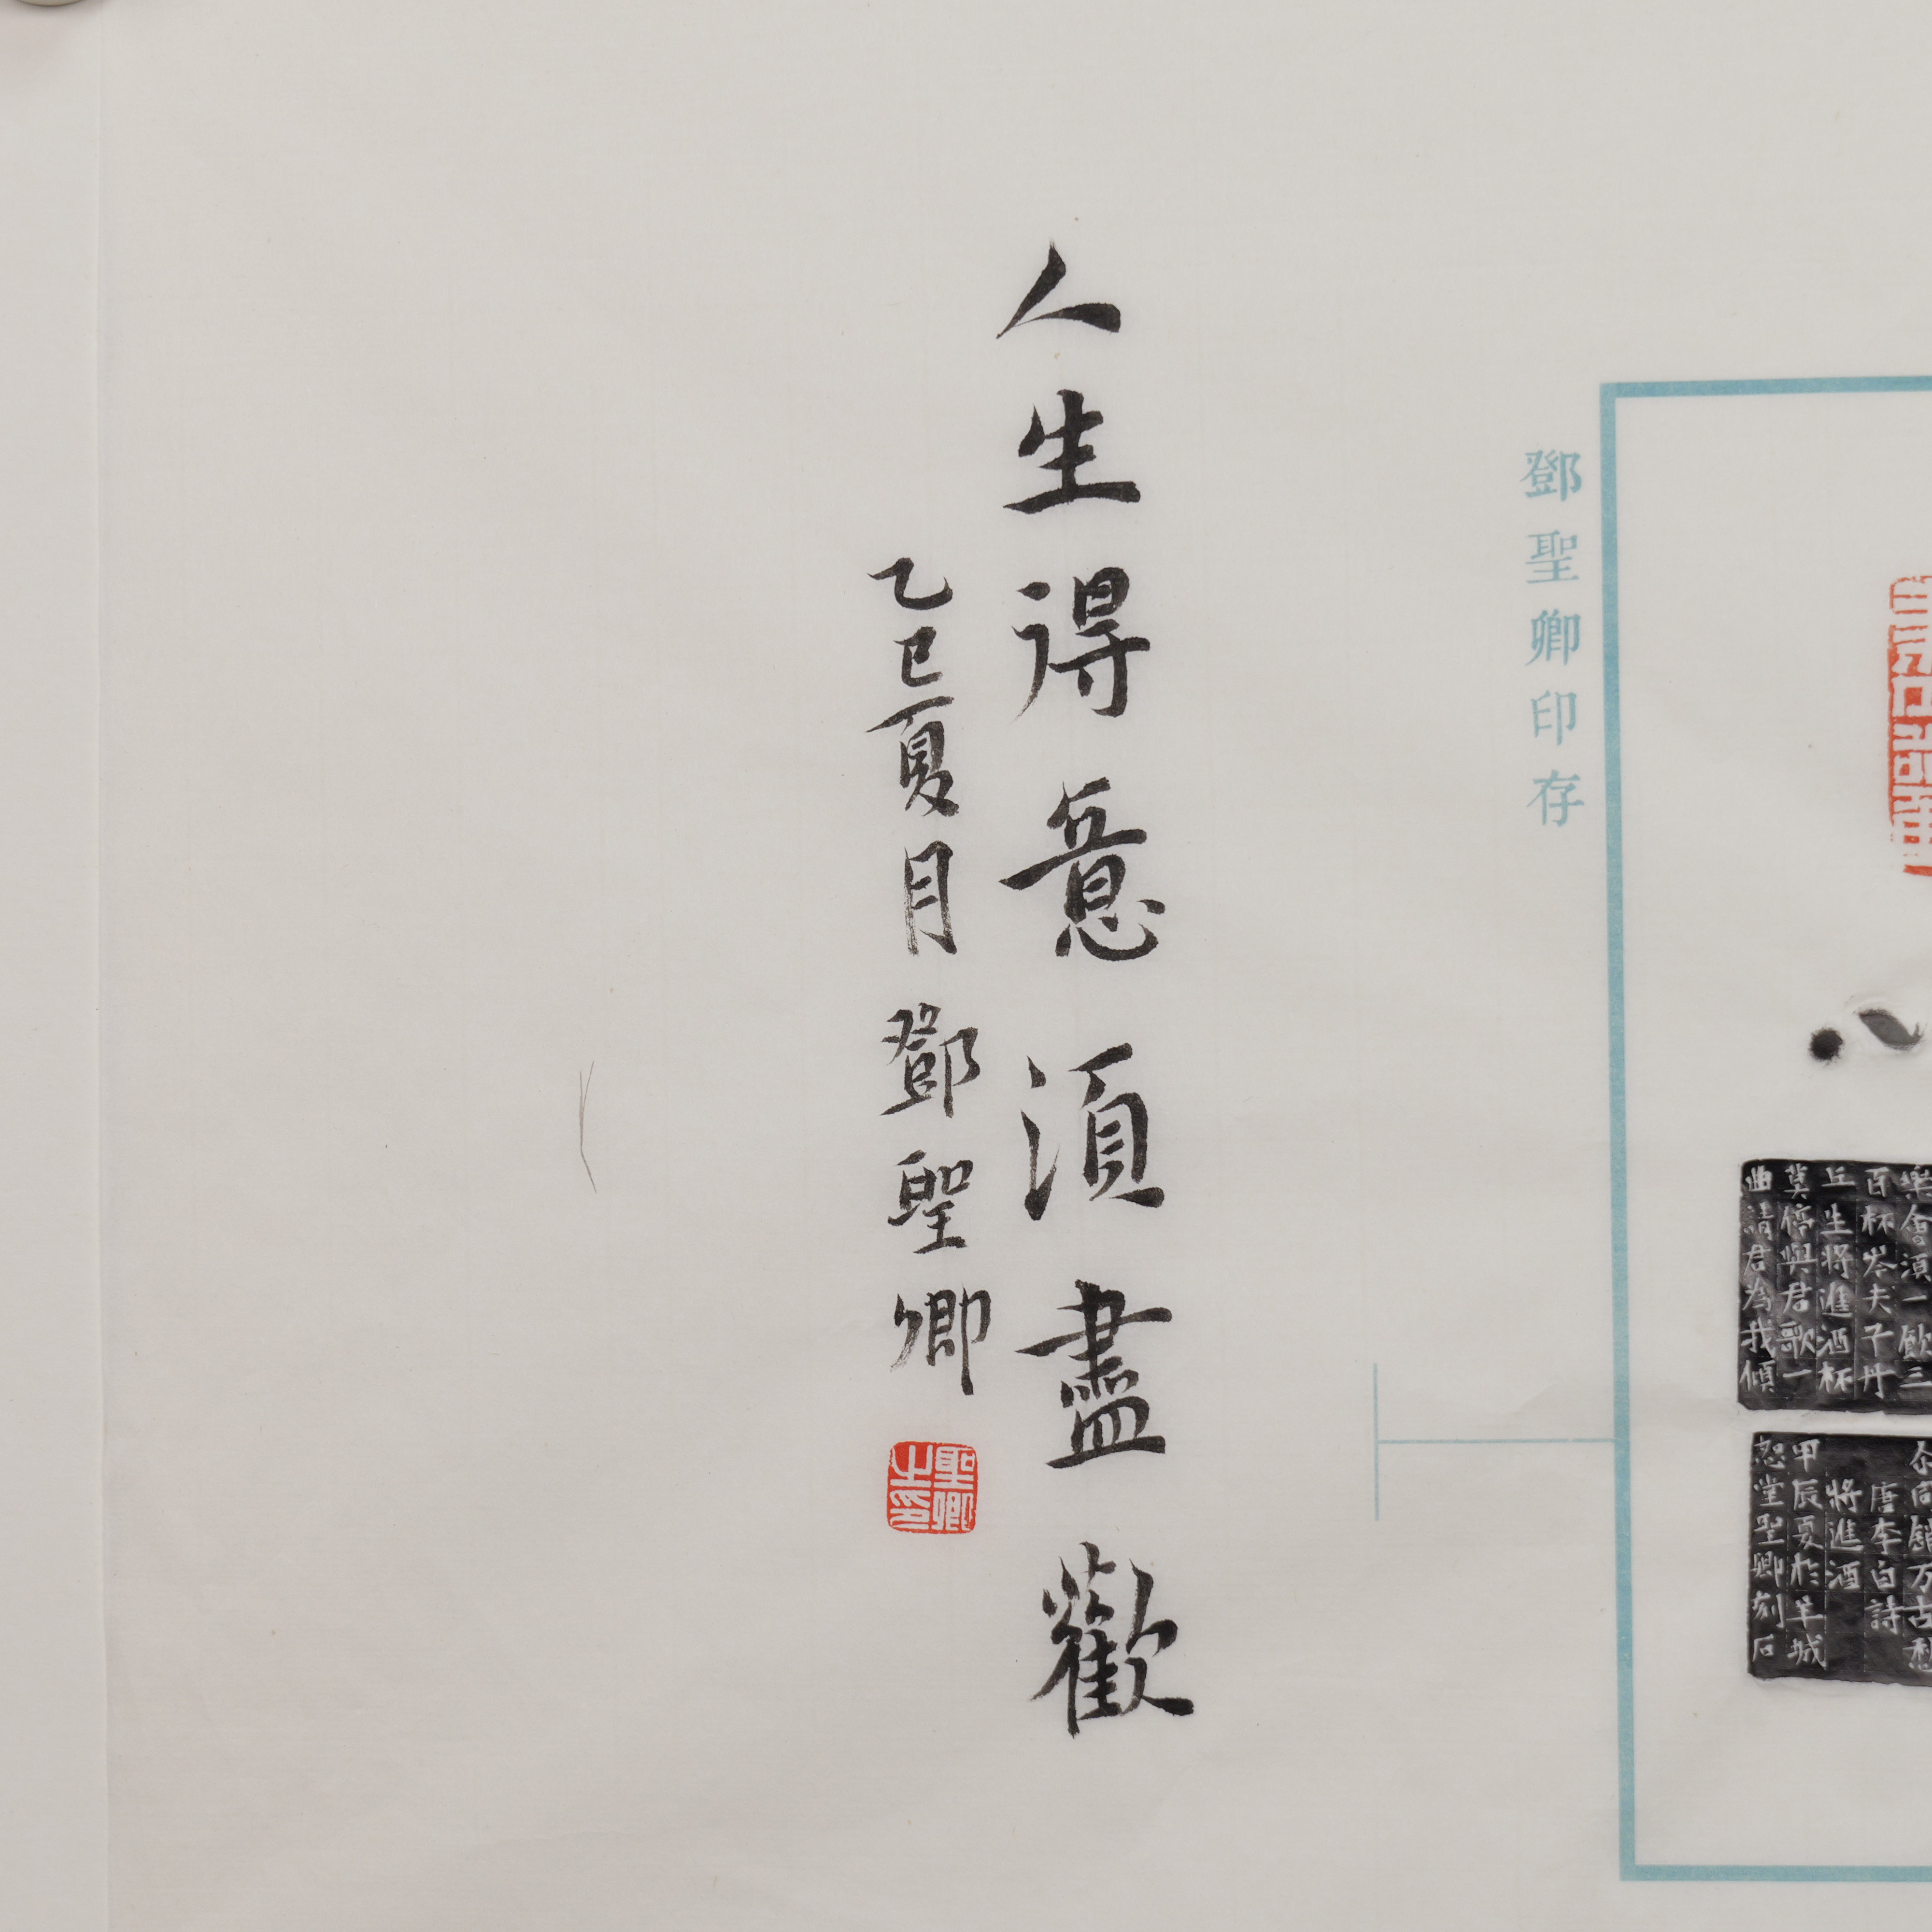 樂會須一飲三
百杯岑夫子丹
丘生將進酒杯
莫停與君歌一
曲請君為我傾
尔同銷万古愁
唐李白詩
將進酒
甲辰夏於羊城
恕堂聖卿刻石
鄧聖卿印存
人生得意須盡歡
乙巳夏月鄧聖卿
聖卿之印